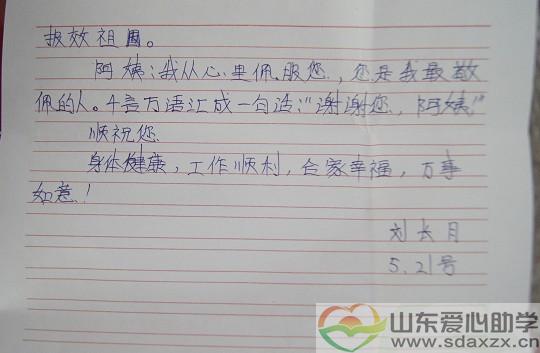 报效祖国。
阿姨：我从心里佩服您，您是我最敬
佩的人。千言万语汇成一句话："谢谢您，阿姨！"
顺祝您
身体健康，工作顺利，合家幸福，万事
如意！
刘长月
5.21号
山东爱心助学
www.sdaxzx.cn